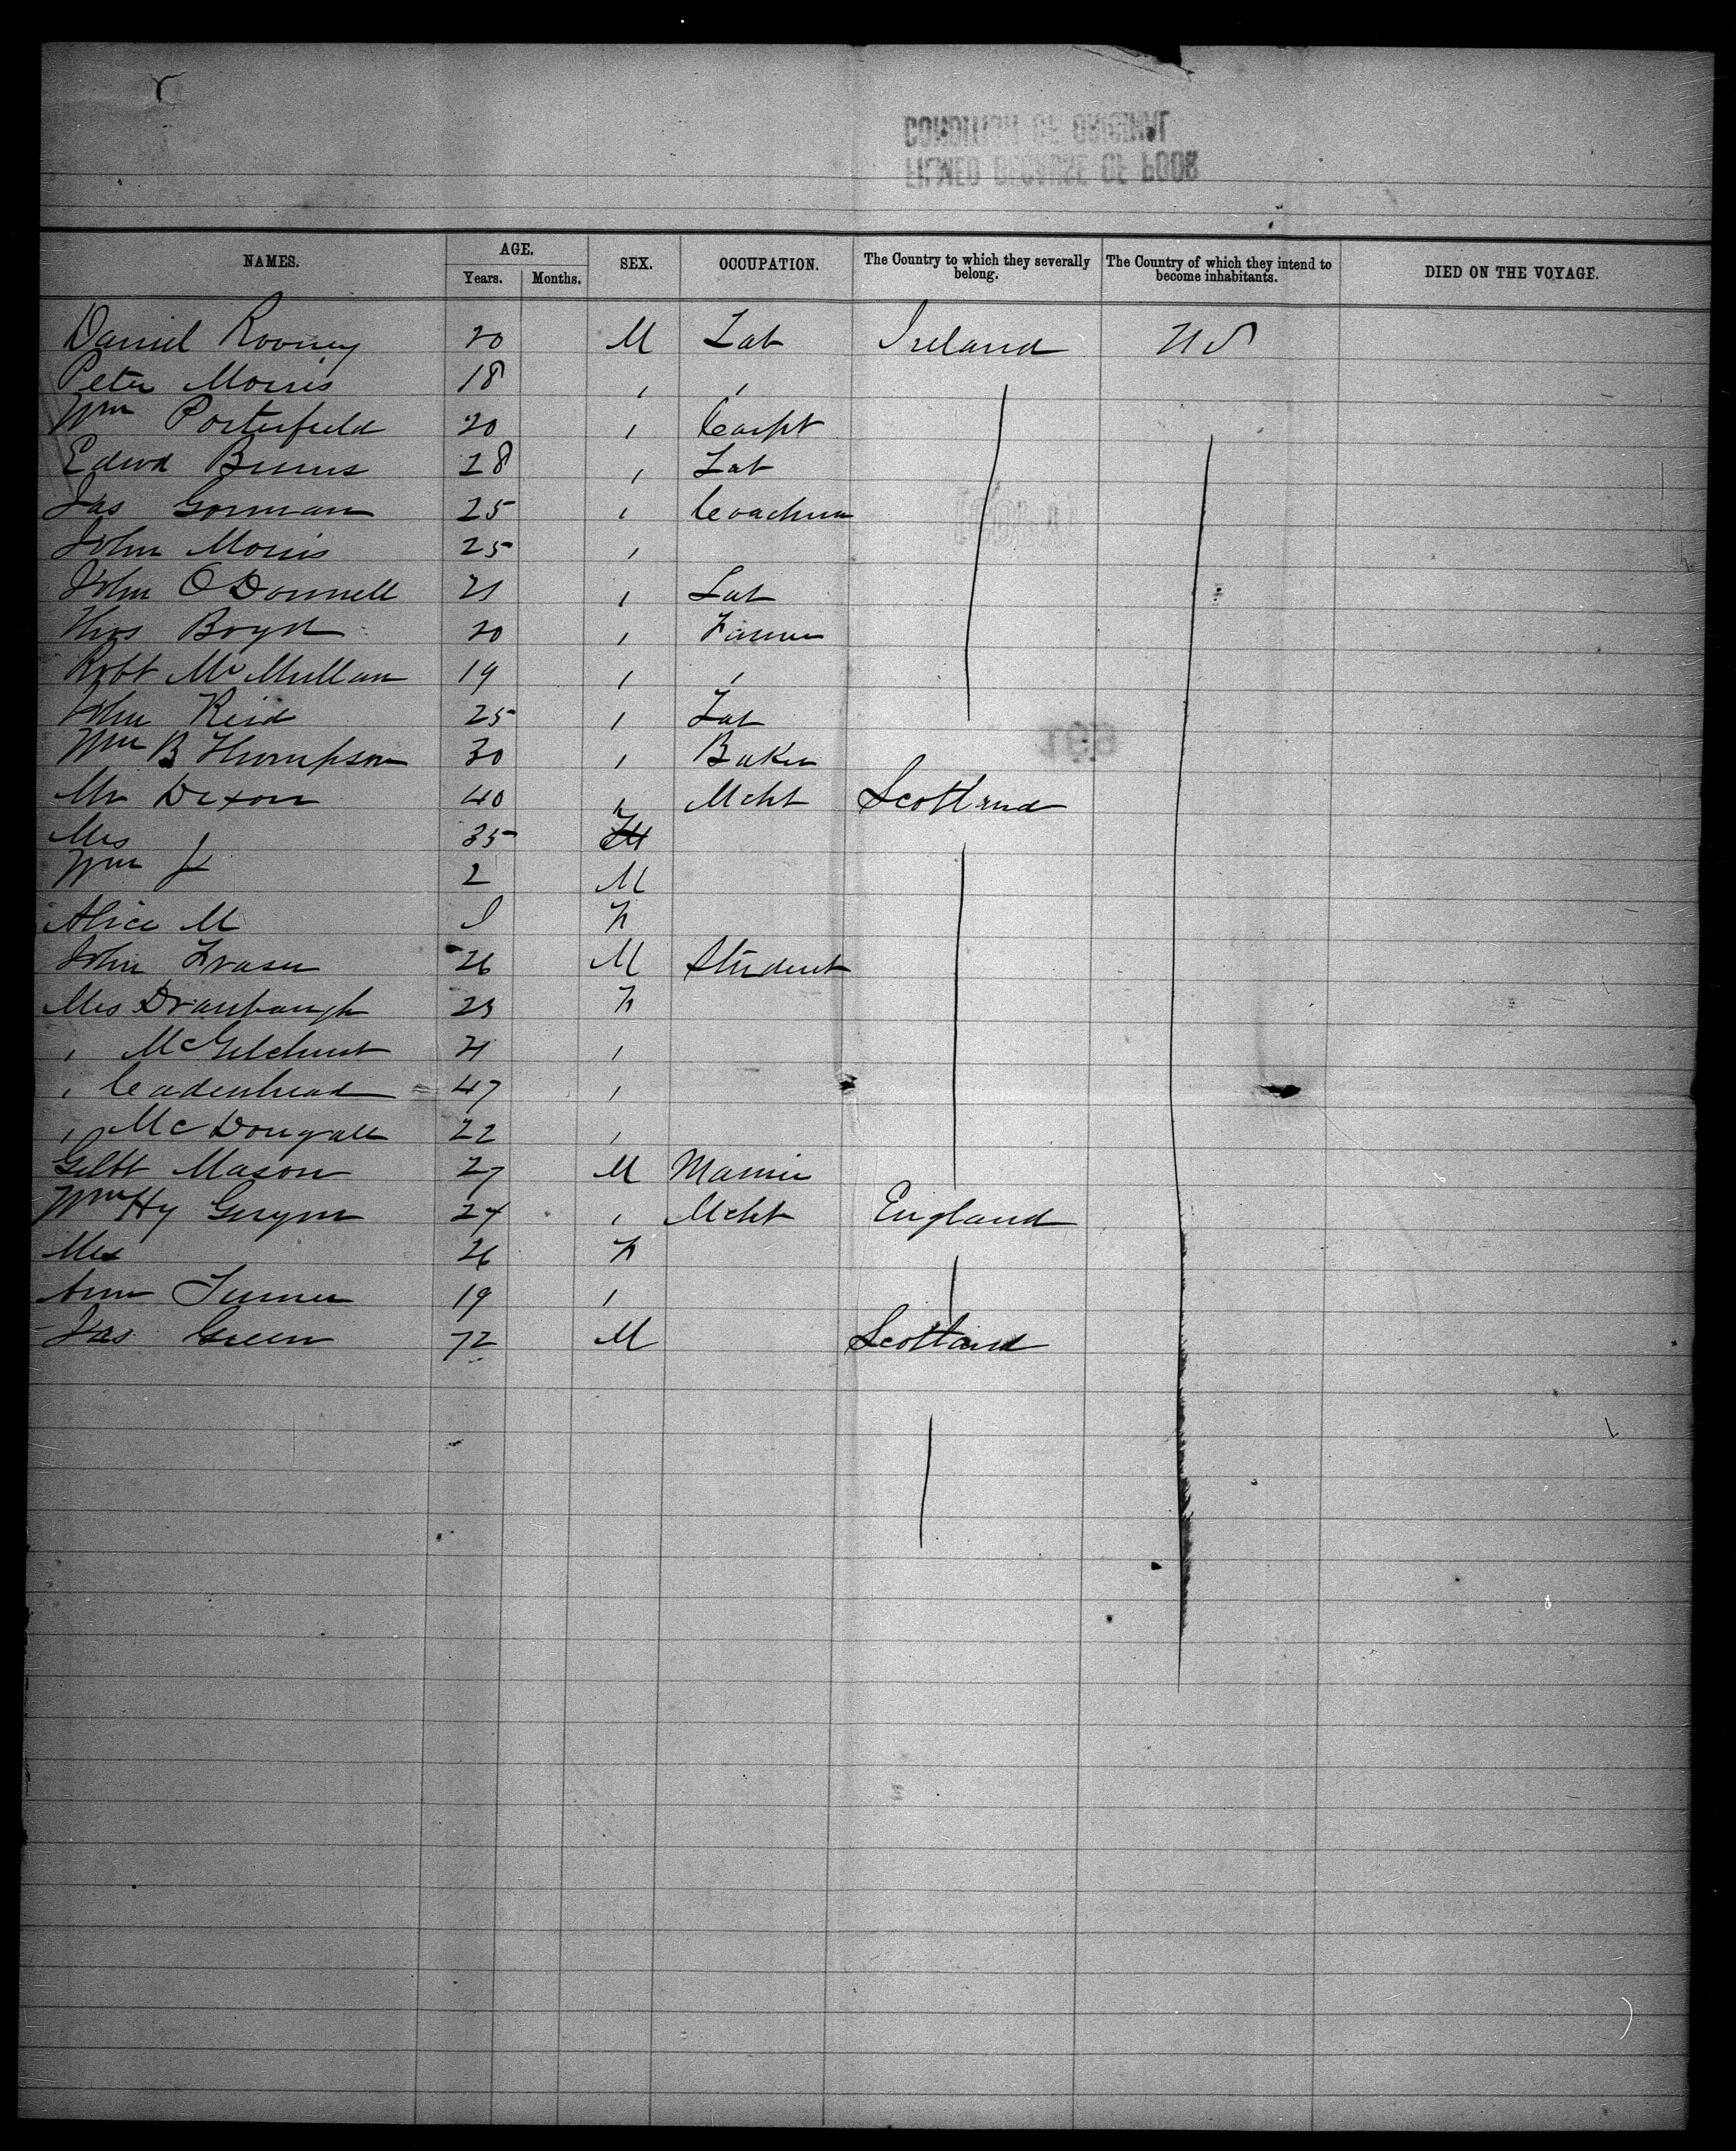 NAMES. AGE. SEX. OCCUPATION. The Country to which they severally belong. The Country of which they intend to become inhabitants. DIED ON THE VOYAGE.
Years. Months.
Daniel Rooney 20 M Lab Ireland US
Peter Morris 18 " "
Wm Porterfield 20 " Carpt
Edwd Burns 28 " Lab
Jas Gorman 25 " Coachman
John Morris 25 "
John O Donnell 21 " Lab
Thos Boyd 20 " Farmer
Robt McMullan 19 " "
John Reid 25 " Lab
Wm B Thompson 30 " Baker
Mr Dixon 40 " Mcht Scotland
Mrs 35 F
Wm J 2 M
Alice M 1 F
John Fraser 26 M Student
Mrs Dranbaugh 23 F
" McGilchrist 21 "
" Cadenhead 47 "
" McDougall 22 "
Gilbt Mason 27 M
Wm Hy 24 " Mcht England
Mrs 26 F
Ann Turner 19 "
Jas Green 72 M Scotland